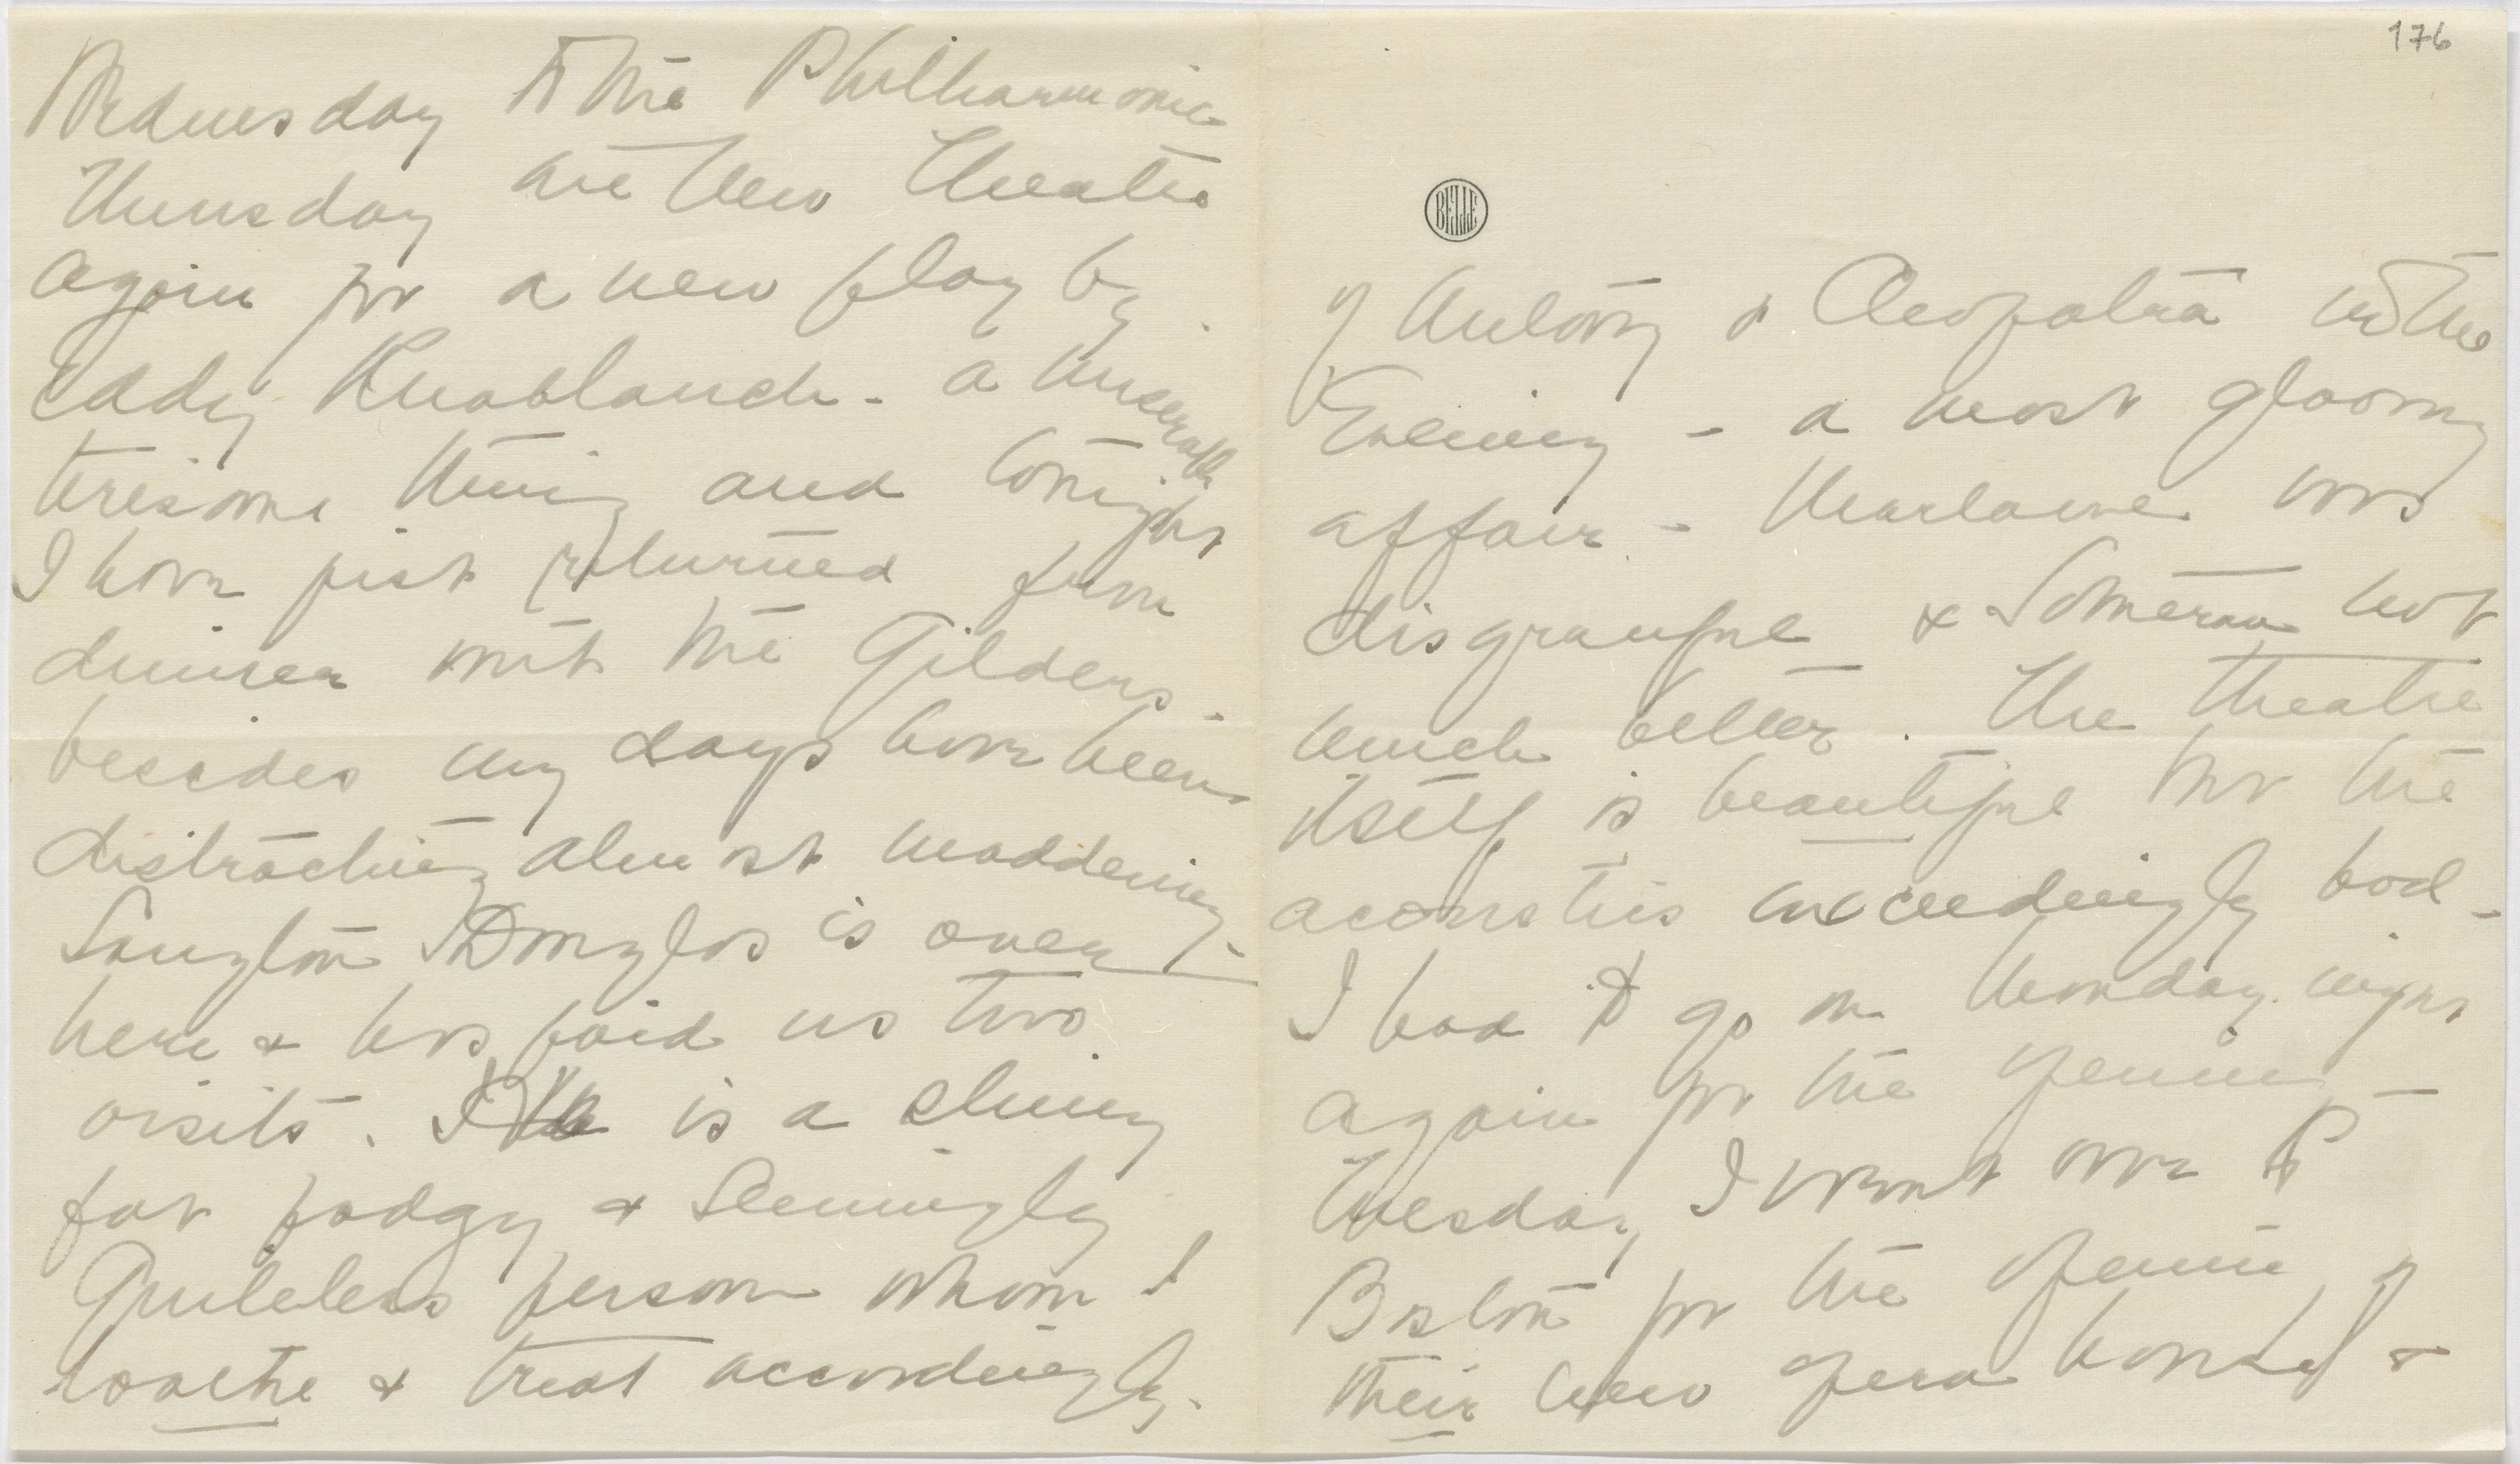 Wednesday to the Philharmonic
Thursday the New Theatre
again for a new play by
Eddy Knoblauch - a miserable
tiresome thing and tonight
I have just returned from
dinner with the Gilders -
besides my days have been
distracting almost maddening -
Langton Douglas is over
here & has paid us two
visits. He is a slimy
fat podgy & seemingly
Guileless person whom I
loathe & treat accordingly.
176
BELLE
of Antony & Cleopatra in the
Evening - a most gloomy
affair - Marlowe was
disgraceful & Sothern not
much better. The theatre
itself is beautiful but the
acoustics exceedingly bad -
I had to go on Monday night
again for the opening -
Tuesday I went over to
Boston for the opening of
their new opera house &